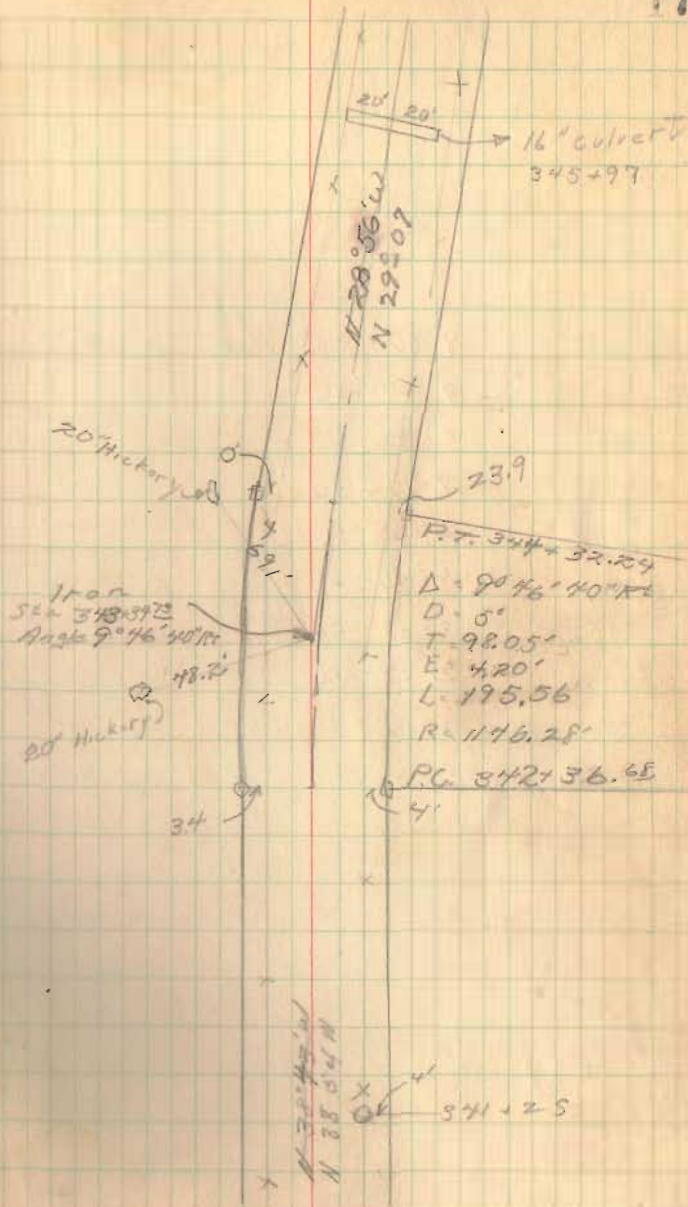 20' 20'
16" culvert
345+97
N 28°56'W
N 29°07
20" Hickory
0'
23.9
69.1'
P.T. 344+32.24
Δ = 9°46'40" Rt
D = 5°
T = 98.05'
E = 4.20'
L = 195.56
R = 1146.28'
Iron
Sta 343+34.73
Angle 9°46'40" Rt
48.2'
20" Hickory
P.C. 342+36.68
3.4
4'
N 38°43'W
4'
341+25